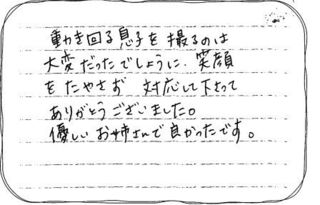 動き回る息子を撮るのは
大変だったでしょうに、笑顔
をたやさず 対応して下さって
ありがとうございました。
優しいお姉さんで良かったです。